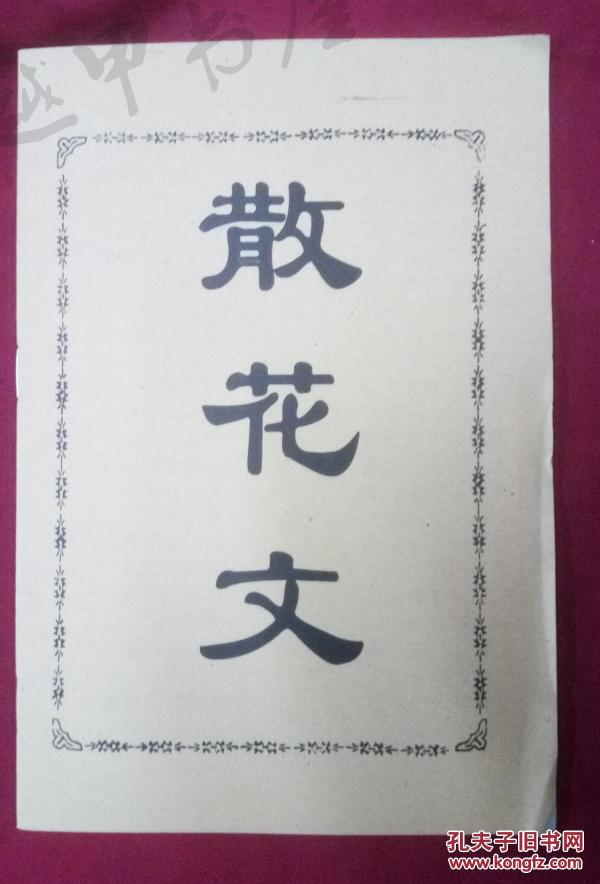 越甲书屋
散
花
文
孔夫子旧书网
www.kongfz.com